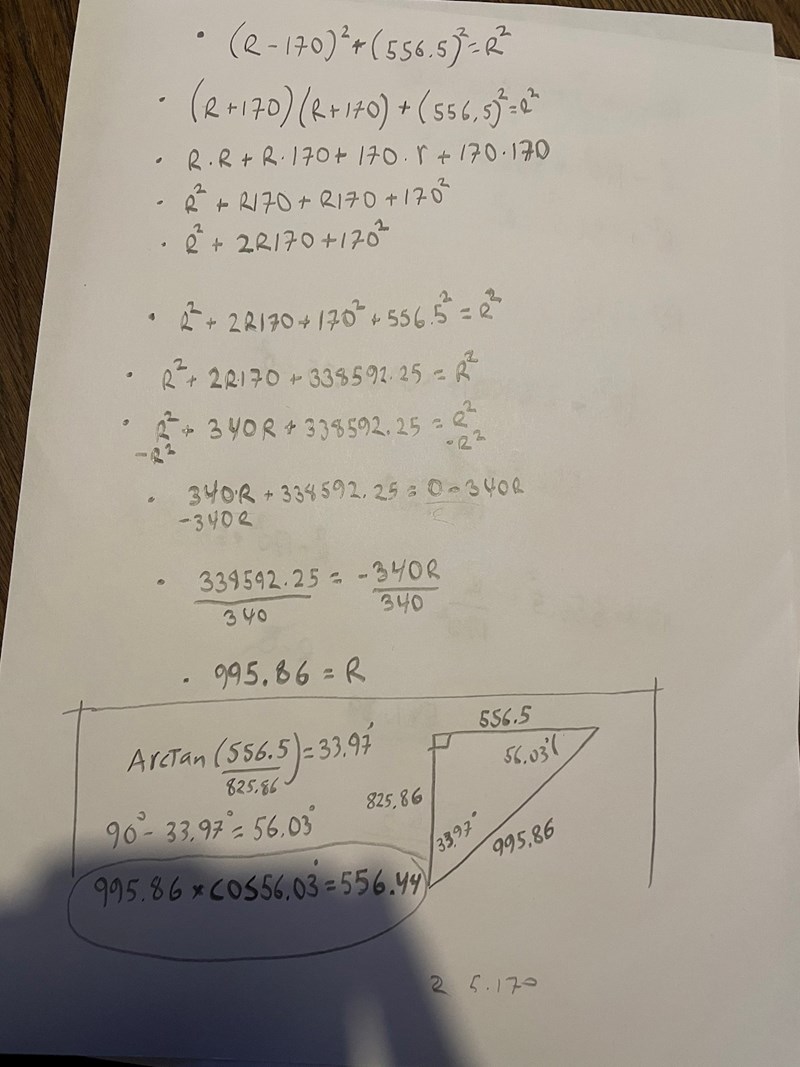 • (R-170)²+(556.5)²=R²
• (R+170)(R+170)+(556,5)²=R²
• R·R+R·170+170·r+170·170
• R²+R170+R170+170²
• R²+2R170+170²
• R²+2R170+170²+556.5²=R²
• R²+2R170+338592.25=R²
• R²+340R+338592.25=R²
-R² -R²
• 340·R+338592.25=0-340R
-340R
• 338592.25 = -340R
340 340
• 995.86=R
556.5
ArcTan(556.5/825.86)=33.97°
56.03°
825.86
90°-33.97°=56.03°
33.97°
995.86
995.86×COS56.03°=556.44
2 5.170